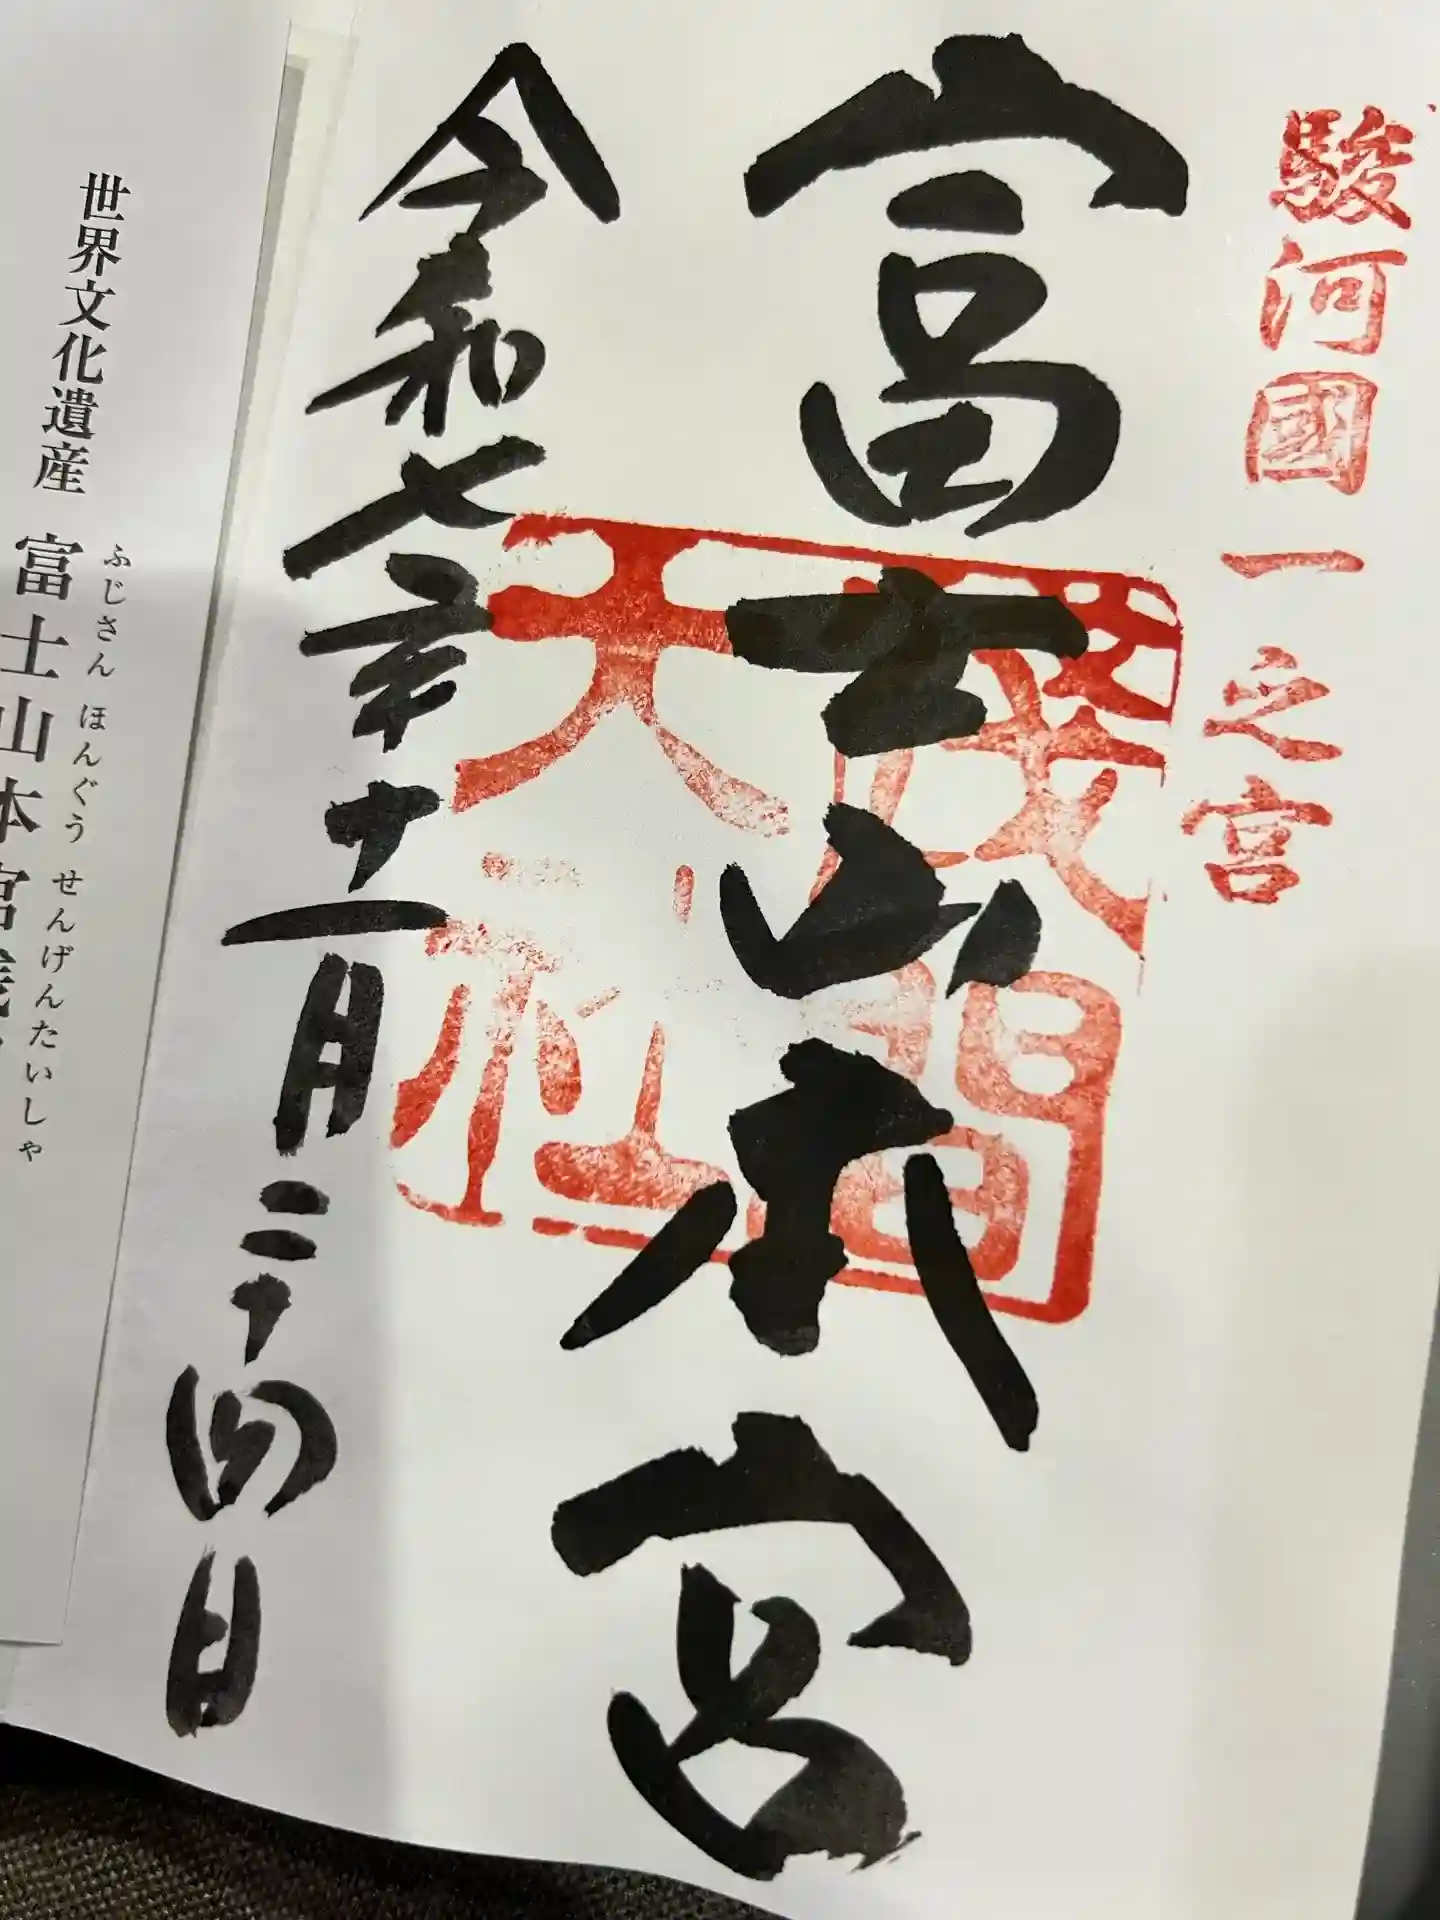 駿河國一之宮
富士山本宮
淺間
大社
令和七年十一月二十四日
世界文化遺産
ふじさん ほんぐう せんげんたいしゃ
富士山本宮浅